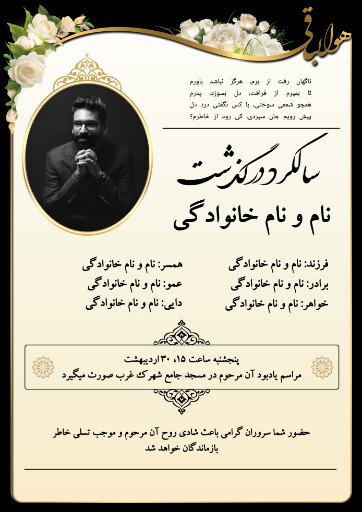 هوالباقی
ناگهان رفت از برم، هرگز نباشد باورم
تا بمیرم از فراقت، دل بسوزد، پدرم
همچو شمعی سوختی، با کس نگفتی درد دل
پیش رویم جان سپردی، کی رود از خاطرم؟
سالگرد درگذشت
نام و نام خانوادگی
فرزند: نام و نام خانوادگی همسر: نام و نام خانوادگی
برادر: نام و نام خانوادگی عمو: نام و نام خانوادگی
خواهر: نام و نام خانوادگی دایی: نام و نام خانوادگی
پنجشنبه ساعت ۱۵، ۳۰ اردیبهشت
مراسم یادبود آن مرحوم در مسجد جامع شهرک غرب صورت میگیرد
حضور شما سروران گرامی باعث شادی روح آن مرحوم و موجب تسلی خاطر
بازماندگان خواهد شد